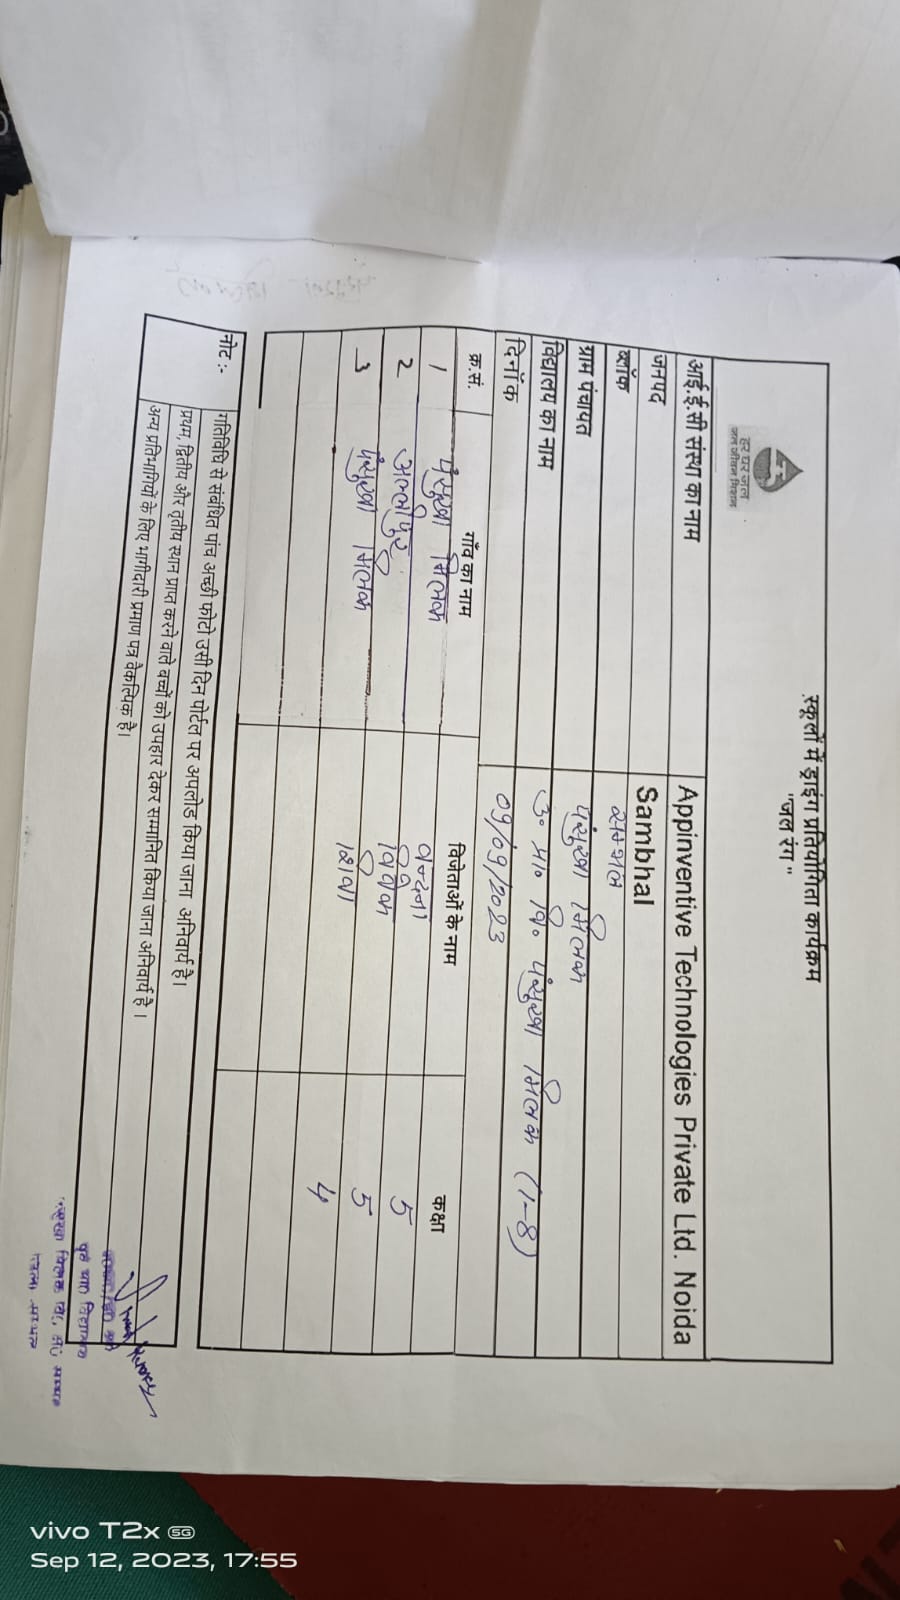 स्कूलों में ड्राइंग प्रतियोगिता कार्यक्रम
"जल रंग"
हर घर जल
जल जीवन मिशन
आई.ई.सी संस्था का नाम Appinventive Technologies Private Ltd. Noida
जनपद Sambhal
ब्लॉक सम्भल
ग्राम पंचायत पंसुखा मिलक
विद्यालय का नाम उ० प्रा० वि० पंसुखा मिलक (1-8)
दिनाँक 09/09/2023
क्र.सं. गाँव का नाम विजेताओं के नाम कक्षा
1 पंसुखा मिलक वन्दना 5
2 5
3 पंसुखा मिलक 4
नोट:- गतिविधि से संबंधित पांच अच्छी फोटो उसी दिन पोर्टल पर अपलोड किया जाना अनिवार्य है।
प्रथम, द्वितीय और तृतीय स्थान प्राप्त करने वाले बच्चों को उपहार देकर सम्मानित किया जाना अनिवार्य है।
अन्य प्रतिभागियों के लिए भागीदारी प्रमाण पत्र वैकल्पिक है।
vivo T2x 5G
Sep 12, 2023, 17:55